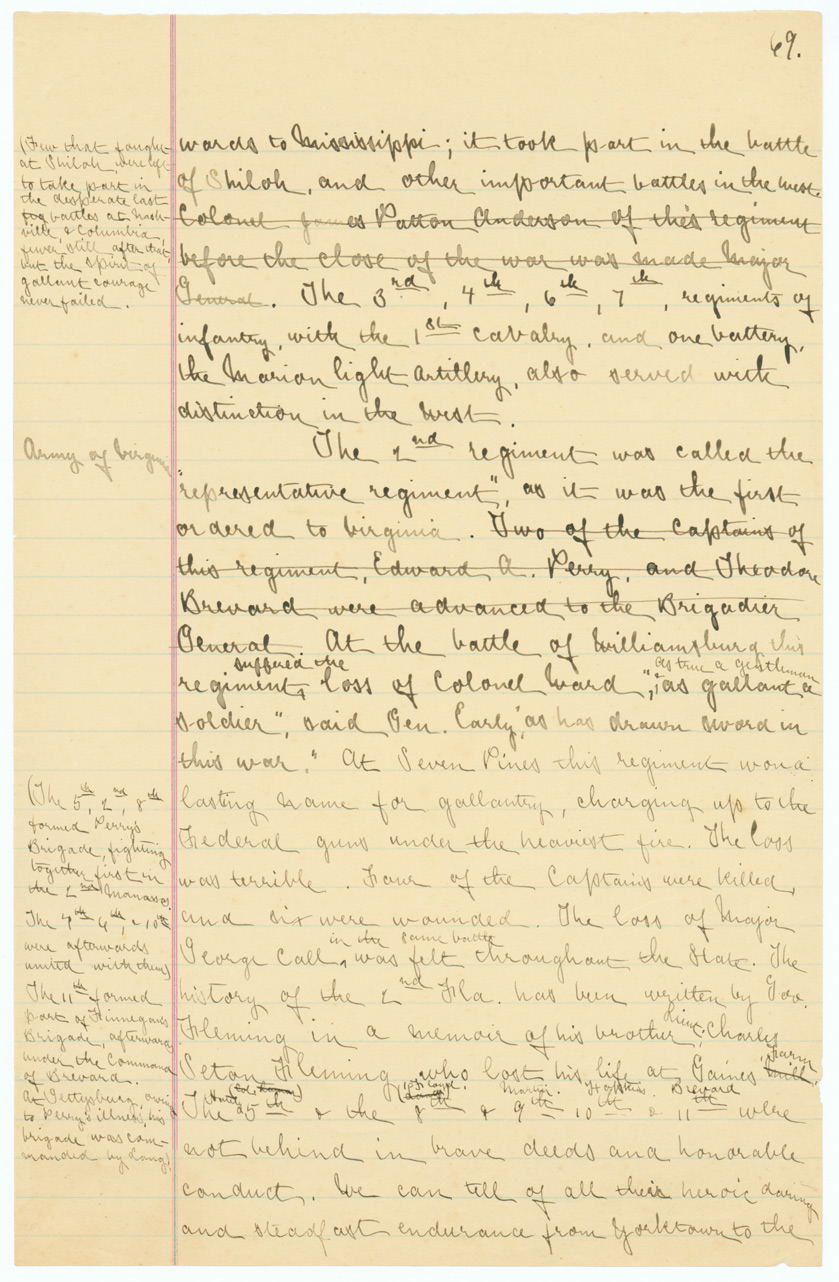 69.
(Few that fought
at Shiloh, were left
to take part in
the desperate last
battles at Nash-
ville, & Columbia,
fewer still after that,
but the spirit of
gallant courage
never failed.
wards to Mississippi; it took part in the battle
of Shiloh, and other important battles in the West.
Colonel James Patton Anderson of this regiment
before the close of the war was made Major
General. The 3rd, 4th, 6th, 7th, regiments of
infantry, with the 1st cavalry, and one battery,
the Marion light Artillery, also served with
distinction in the West.
Army of Virginia
The 2nd regiment was called the
"representative regiment", as it was the first
ordered to Virginia. Two of the Captains of
this regiment, Edward A. Perry, and Theodore
Brevard were advanced to the Brigadier
General. At the battle of Williamsburg this
suffered the
as true a gentleman
regiment, loss of Colonel Ward, "as gallant a
soldier", said Gen. Early, "as has drawn sword in
this war." At Seven Pines this regiment won a
lasting name for gallantry, charging up to the
Federal guns under the heaviest fire. The loss
was terrible. Four of the Captains were killed,
and six were wounded. The loss of Major
in the same battle
George Call, was felt throughout the State. The
history of the 2nd Fla. has been written by Gov.
Fleming in a memoir of his brother, Charles
Seton Fleming, who lost his life at Gaines' Mill.
Farm
(The 5th, 2nd, 8th
formed Perry's
Brigade, fighting
together first in
the 2nd Manassas.
The 4th 6th, & 10th
were afterwards
united with them)
The 11th formed
part of Finnegan's
Brigade, afterward
under the command
of Brevard.
At Gettysburg owing
to Perry's illness, his
brigade was com-
manded by Lang)
Martin. Hopkins. Brevard
The 5th & the 8th & 9th 10th & 11th were
not behind in brave deeds and honorable
conduct. We can tell of all their heroic daring
and steadfast endurance from Yorktown to the